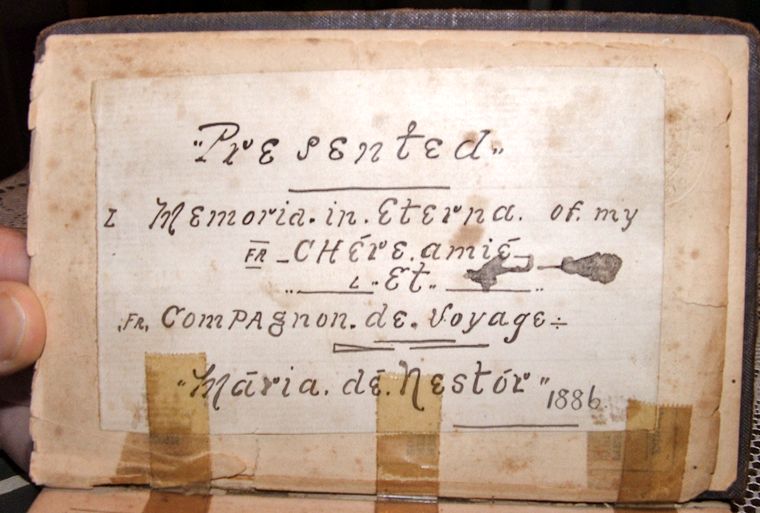 "Presented"
I Memoria. in. Eterna. of. my
FR - CHÉre. amié -
L. Et.
.FR. COMPAgnon. de. Voyage÷
"Māria. dé. Nestór" 1886